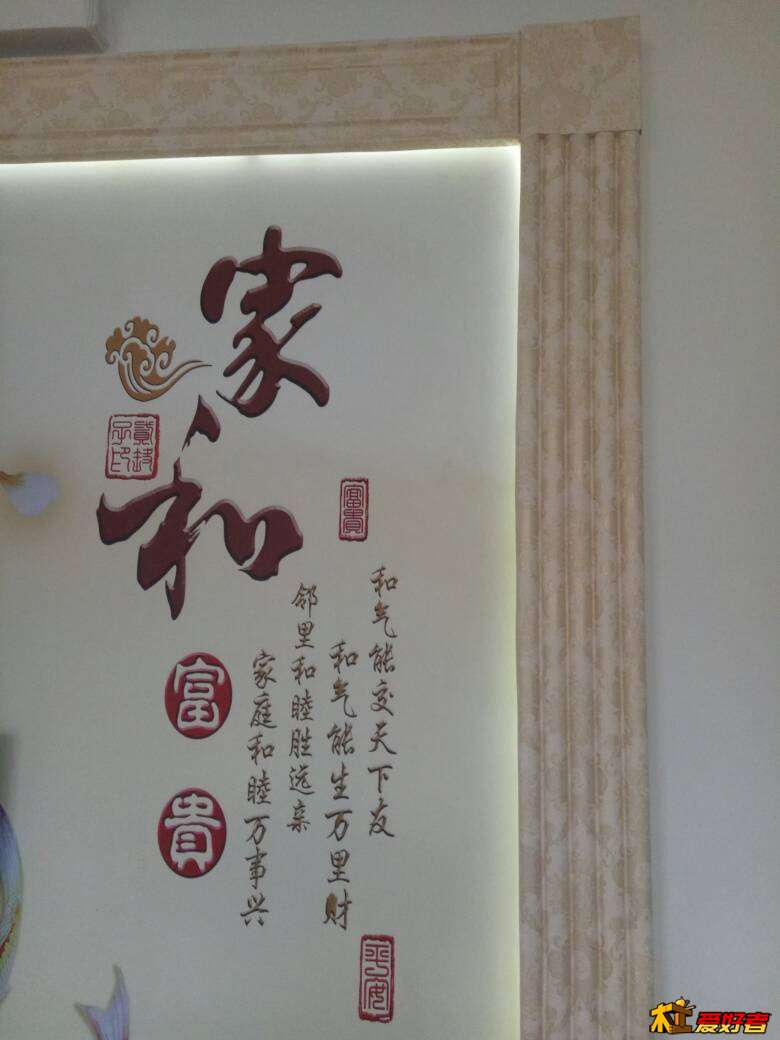 家和
富貴
和气能交天下友
和气能生万里财
邻里和睦胜远亲
家庭和睦万事兴
富貴
平安
杠爱好者